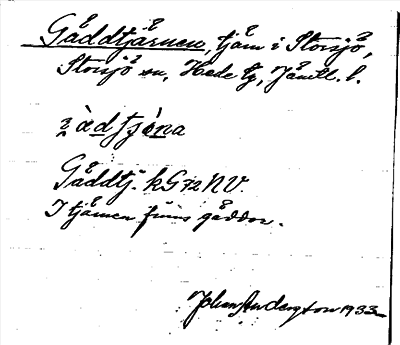 Gåddtjärnen, tjärn i Storsjö,
Storsjö sn, Hede tg, Jämtl. l.
Gäddtj. kG72NV.
I tjärnen finns gäddor.
Johan Anderzson 1933